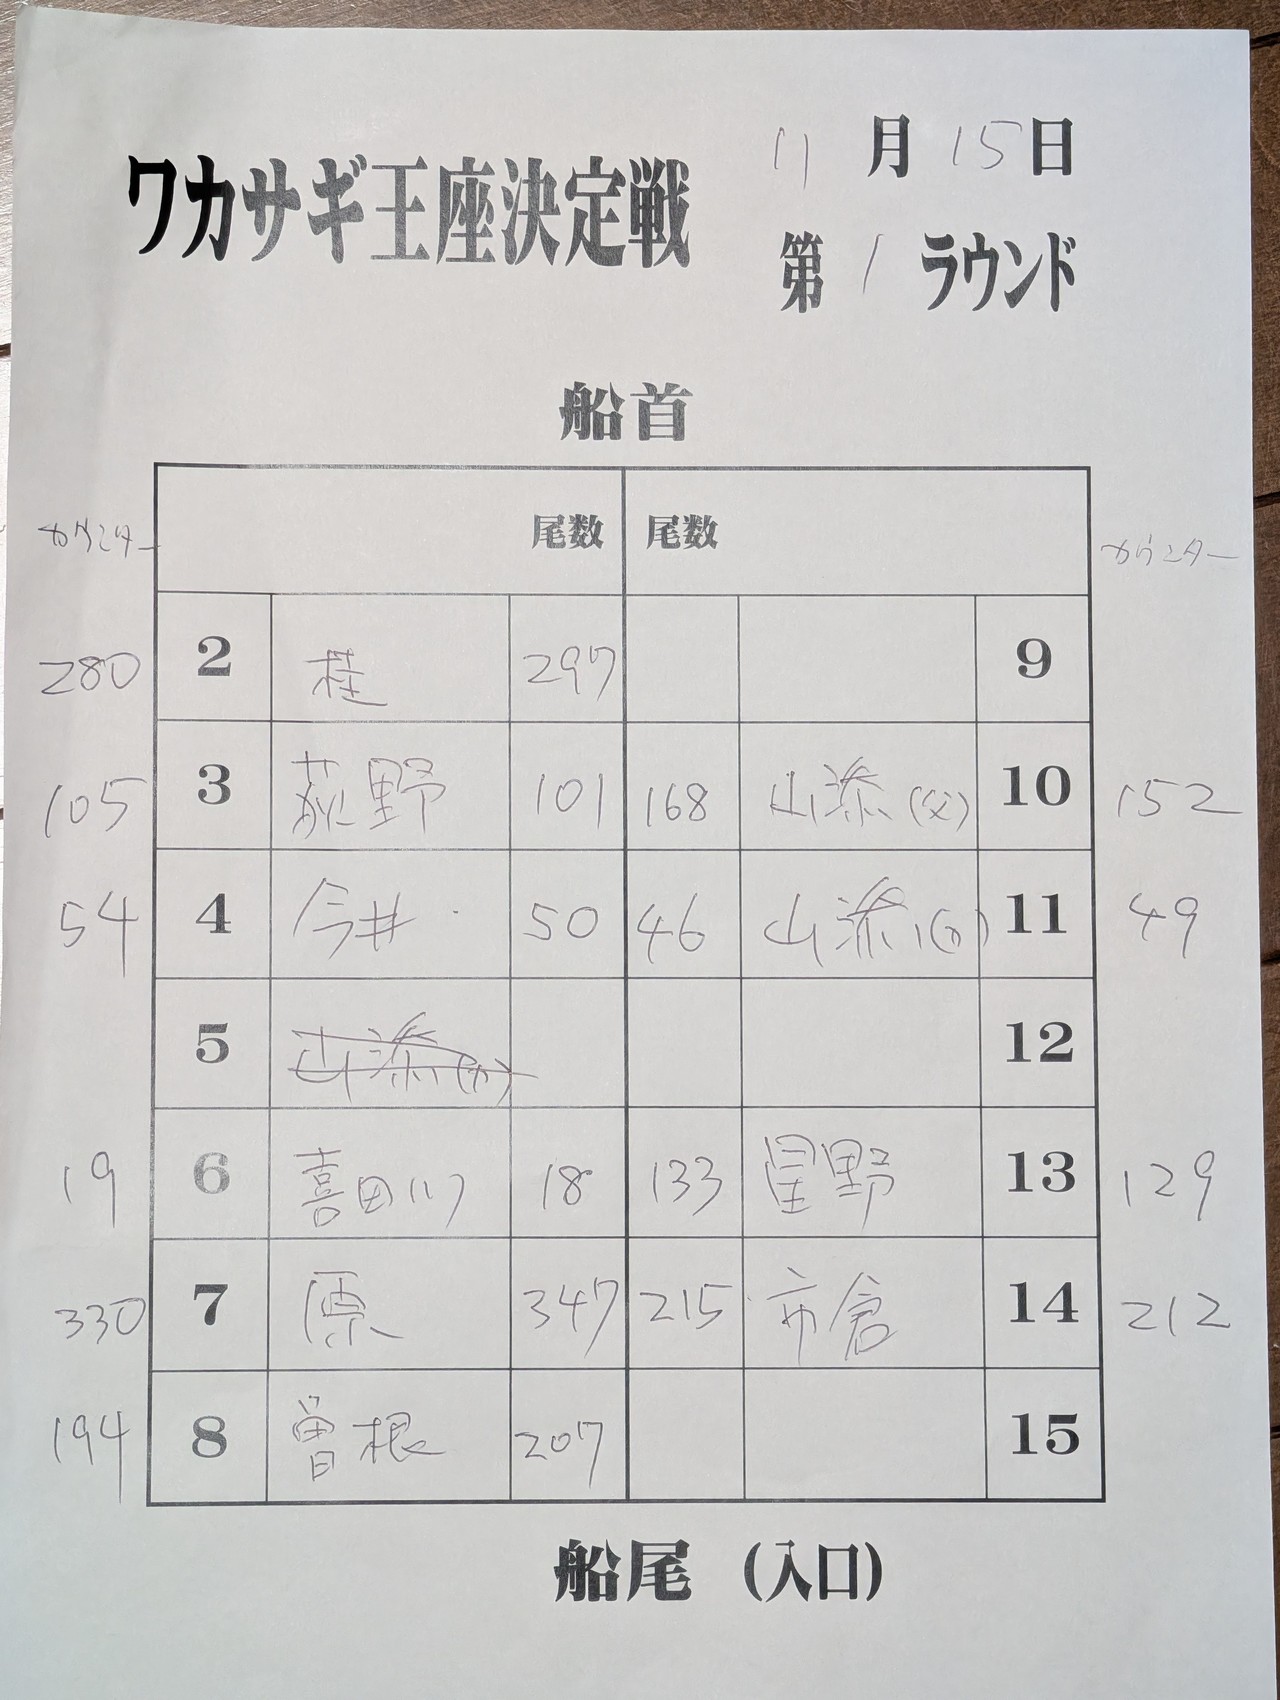 ワカサギ王座決定戦
11月15日
第1ラウンド
船首
カウンター 尾数 尾数 カウンター
280 2 桂 297 9
105 3 荻野 101 168 山添(父) 10 152
54 4 今井 50 46 山添 11 49
5 山添 12
19 6 喜田川 18 133 星野 13 129
330 7 原 347 215 市倉 14 212
194 8 曽根 207 15
船尾 (入口)